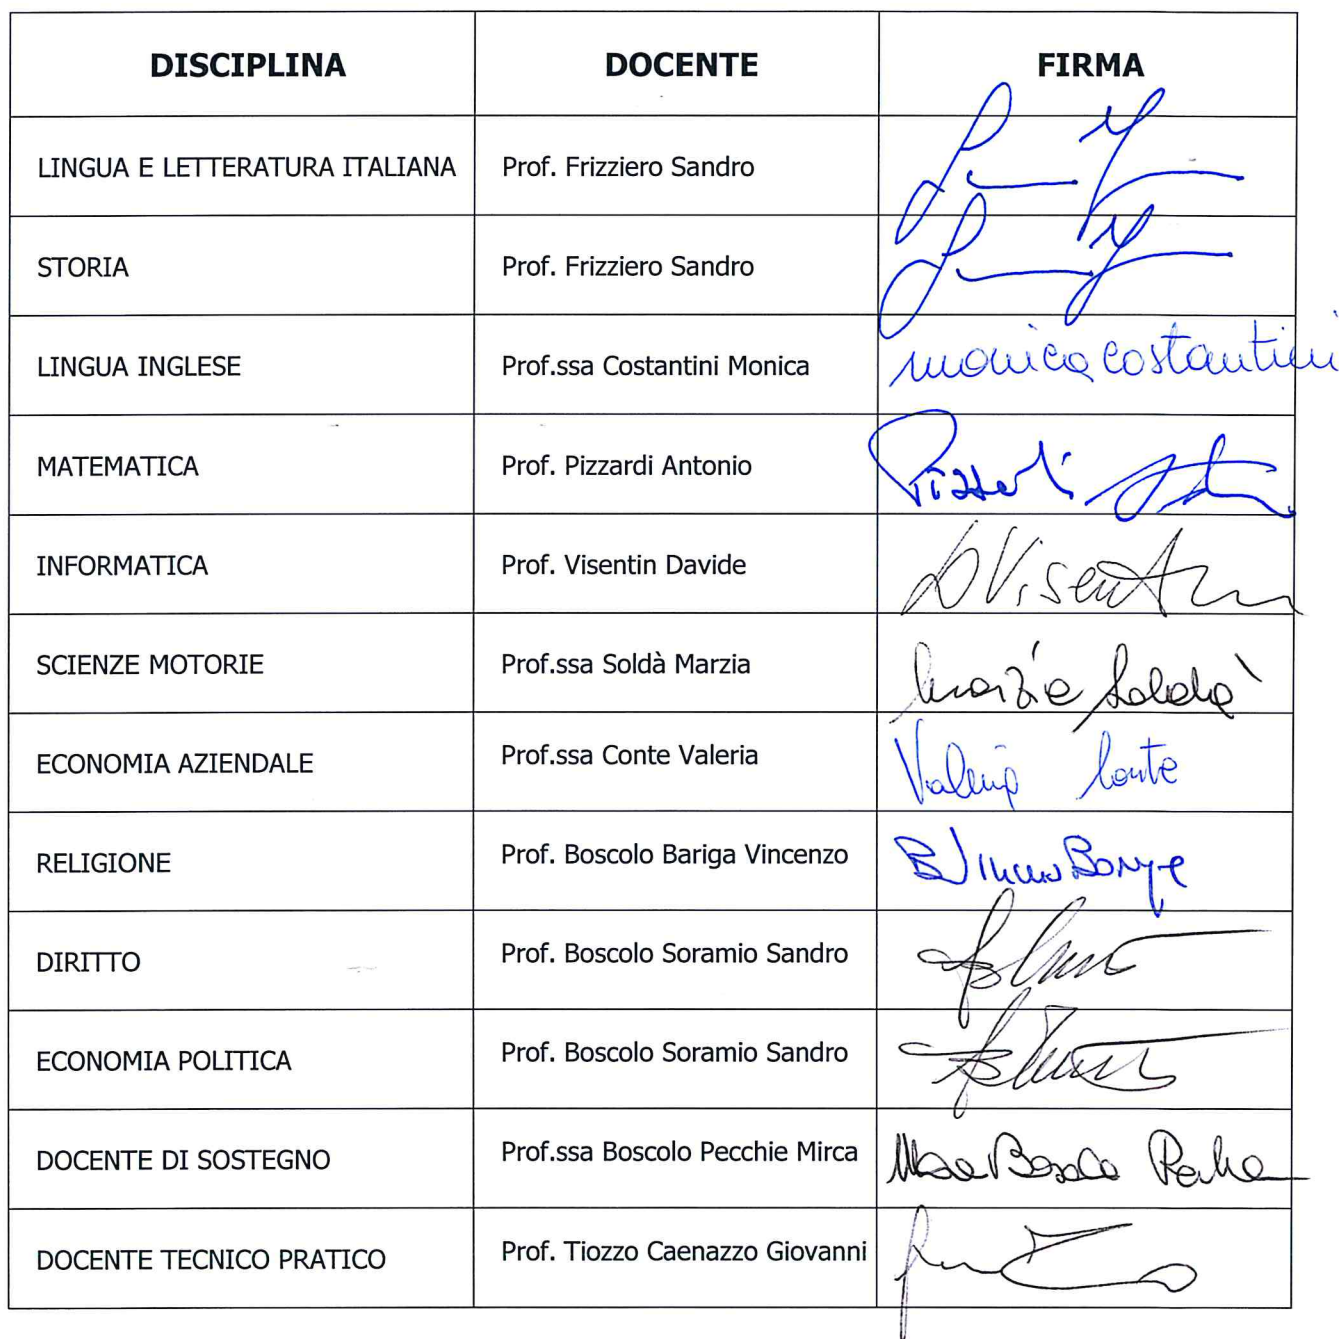 DISCIPLINA DOCENTE FIRMA
LINGUA E LETTERATURA ITALIANA Prof. Frizziero Sandro
STORIA Prof. Frizziero Sandro
LINGUA INGLESE Prof.ssa Costantini Monica monica costantini
MATEMATICA Prof. Pizzardi Antonio
INFORMATICA Prof. Visentin Davide D Visentin
SCIENZE MOTORIE Prof.ssa Soldà Marzia Marzia Soldà
ECONOMIA AZIENDALE Prof.ssa Conte Valeria Valeria Conte
RELIGIONE Prof. Boscolo Bariga Vincenzo
DIRITTO Prof. Boscolo Soramio Sandro
ECONOMIA POLITICA Prof. Boscolo Soramio Sandro
DOCENTE DI SOSTEGNO Prof.ssa Boscolo Pecchie Mirca
DOCENTE TECNICO PRATICO Prof. Tiozzo Caenazzo Giovanni